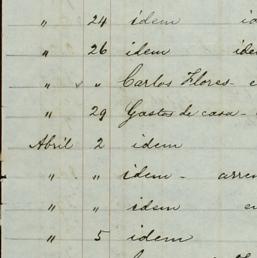 " 24 idem
" 26 idem
" " Carlos Flores -
" 29 Gastos de casa -
Abril 2 idem
" " idem -
" " idem
" 5 idem